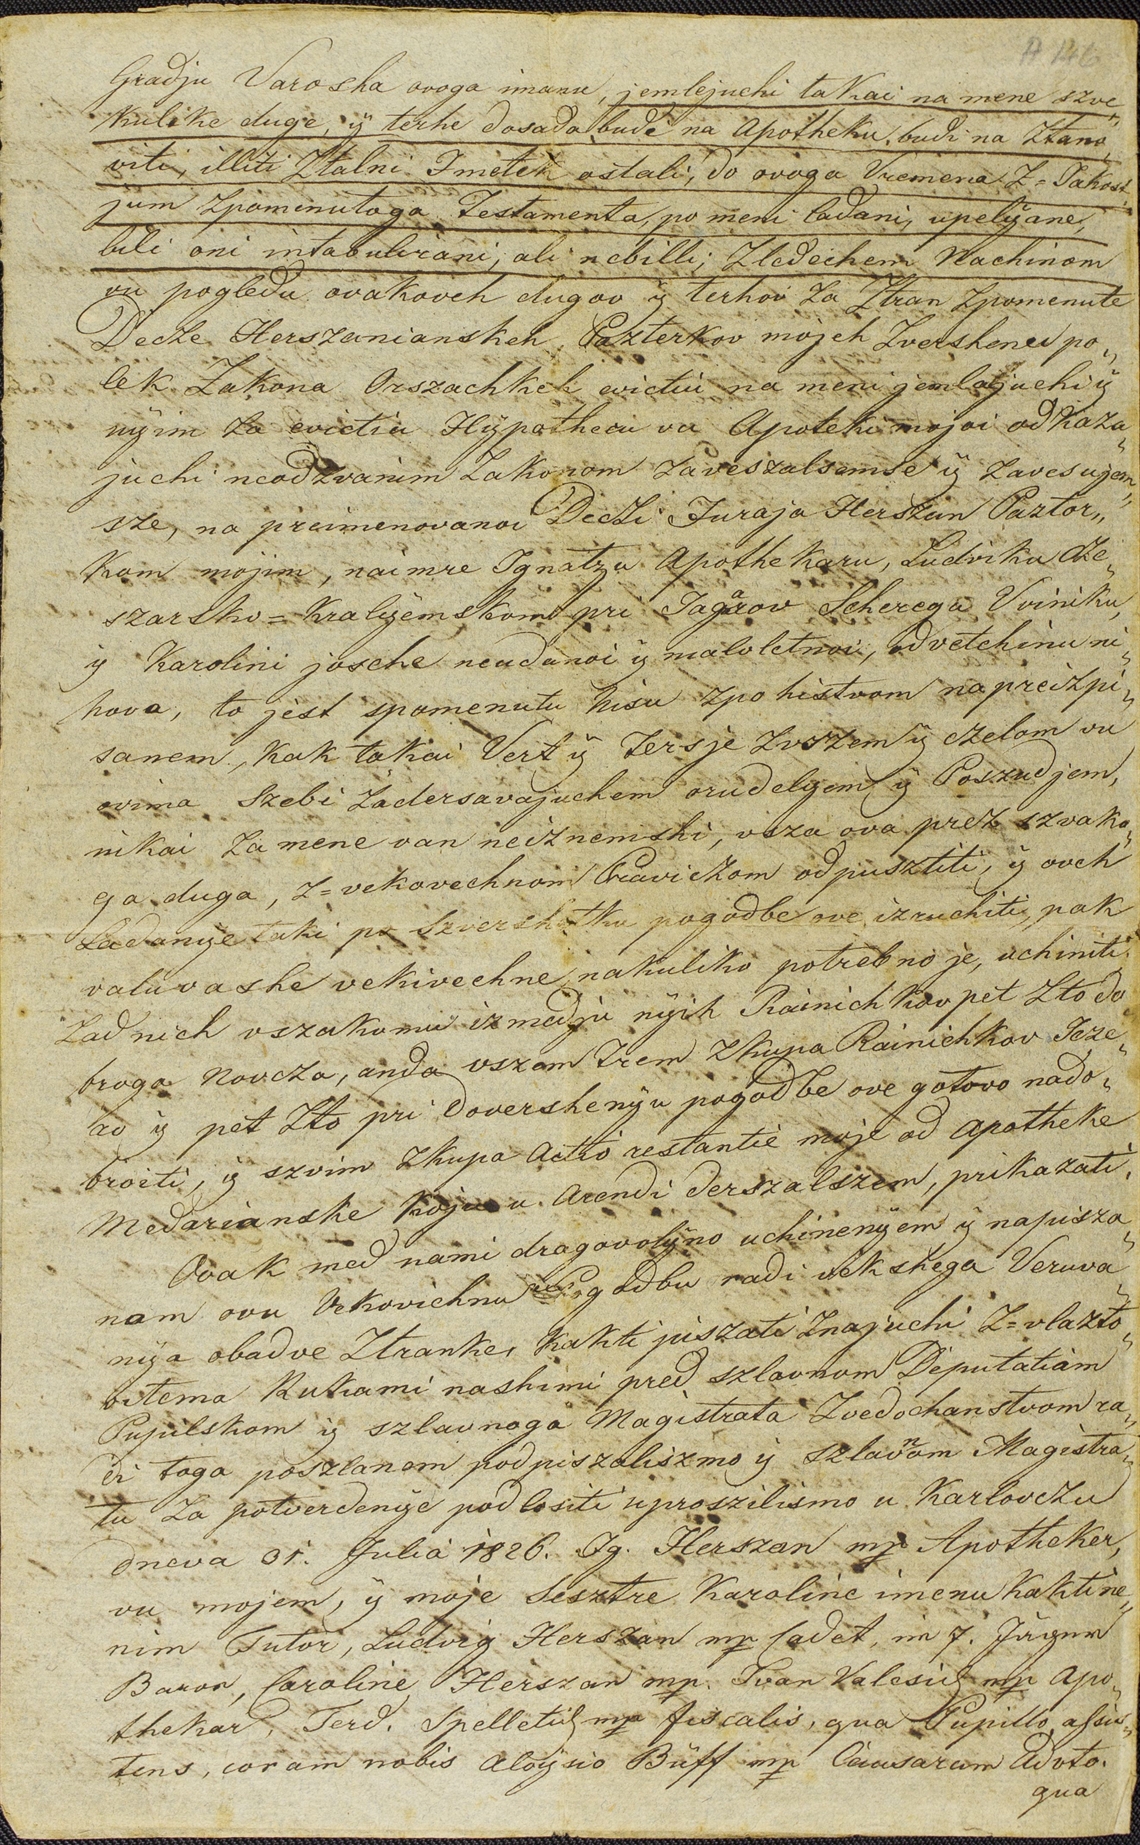 A 146
Gradju Varosha ovoga imanu, jemlejuchi takai na mene szve
kulike duge, ÿ terhe dosada budi na Apotheku, budi na Ztano„
viti, illiti Ztalni Imetek ostali, do ovoga Vremena Z=Takost
jum Zpomenutoga Testamenta, po meni ladani, upelÿane,
bili oni intabulirani, ali nebilli; Zledechem Nachinom
vu pogledu ovakoveh dugov ÿ terhov za Ztran Zpomenute
Decze Herszanianskeh Pazterkov mojeh Zvershenei po„
lek Zakona Orszachkeh evictiu na meni jemlajuchi ÿ
nÿim za evictiu Hÿpothecu vu Apoteki mojoi odkazu„
juchi neodzvanim Zakonom zaveszalsemse ÿ zavesujem„
sze, na preimenovanoi Deczi Juraja Herszan Paztor„
kom mojim, naimre Ignatzu Apothekaru, Ludviku Cze„
szarsko=Kralÿemskom pri Jagarov Scherega Voiniku,
ÿ Karolini josche neudanoi ÿ maloletnoi, odvetchinu ni„
hova, to jest spomenutu hisu zpohistvom napreizpi„
sanem, kak takai Vert ÿ Tersje zvszem ÿ czelom vu
ovima szebi zadersavajuchem orudelÿem ÿ Poszudjem,
nikai za mene van neiznemshi, vsza ova prez szvako„
ga duga, z=vekovechnom Pravicżom odpusztiti, ÿ oveh
Ladanÿe taki po szvershetku pogodbe ove izruchiti, pak
valuvashe vekivechne, nakuliko potrebno je, uchiniti.
Zadnich vszakomu izmedju nÿih Rainichkov pet zto do
broga Novcza, anda vszem Trem zkupa Rainichkov Jeze„
ro ÿ pet zto pri dovershenÿu pogodbe ove gotovo nado„
broiti, ÿ szvim zkupa Actio restantie moje od Apotheke
Medarianske koju u Arendi derszalszem, prikazati.
Ovak med nami dragovolÿno uchinenÿem ÿ napisza„
nam ovu Vekovichnu Pogodbu radi vekshega Veruva„
nÿa obadve Ztranke, kakti piszati znajuchi z=vlazto„
vitema Rukami nashimi pred szlavnom Deputatiam
Pupilskom ÿ szlavnoga Magistrata Zvedochanstvom ra„
di toga poszlanom podpiszaliszmo ÿ szlavnom Magistra„
tu za potverdenÿe podlositi uproszilismo u Karlovczu
dneva 31. Julia 1826. Ig. Herszan mp Apotheker,
vu mojem, ÿ moje Sesztre Karoline imenu kakti nė„
nim Tutor, Ludvig Herszan mp Cadet, im 7. Jägern
Baron, Caroline Herszan mp. Ivan Valesich mp Apo„
thekar, Ferd. Spelletich mp fiscalis, qua Pupillo assis„
tens, coram nobis Aloÿsio Büff mp Causarum Advto.
qua